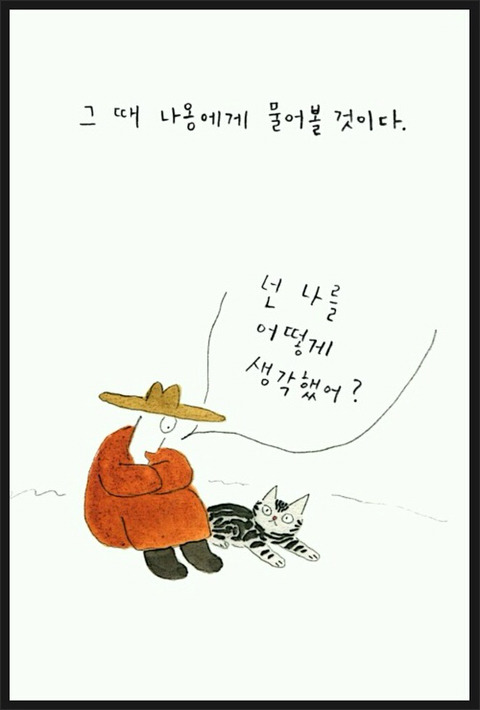 그 때 나옹에게 물어볼 것이다.
넌 나를
어떻게
생각했어?